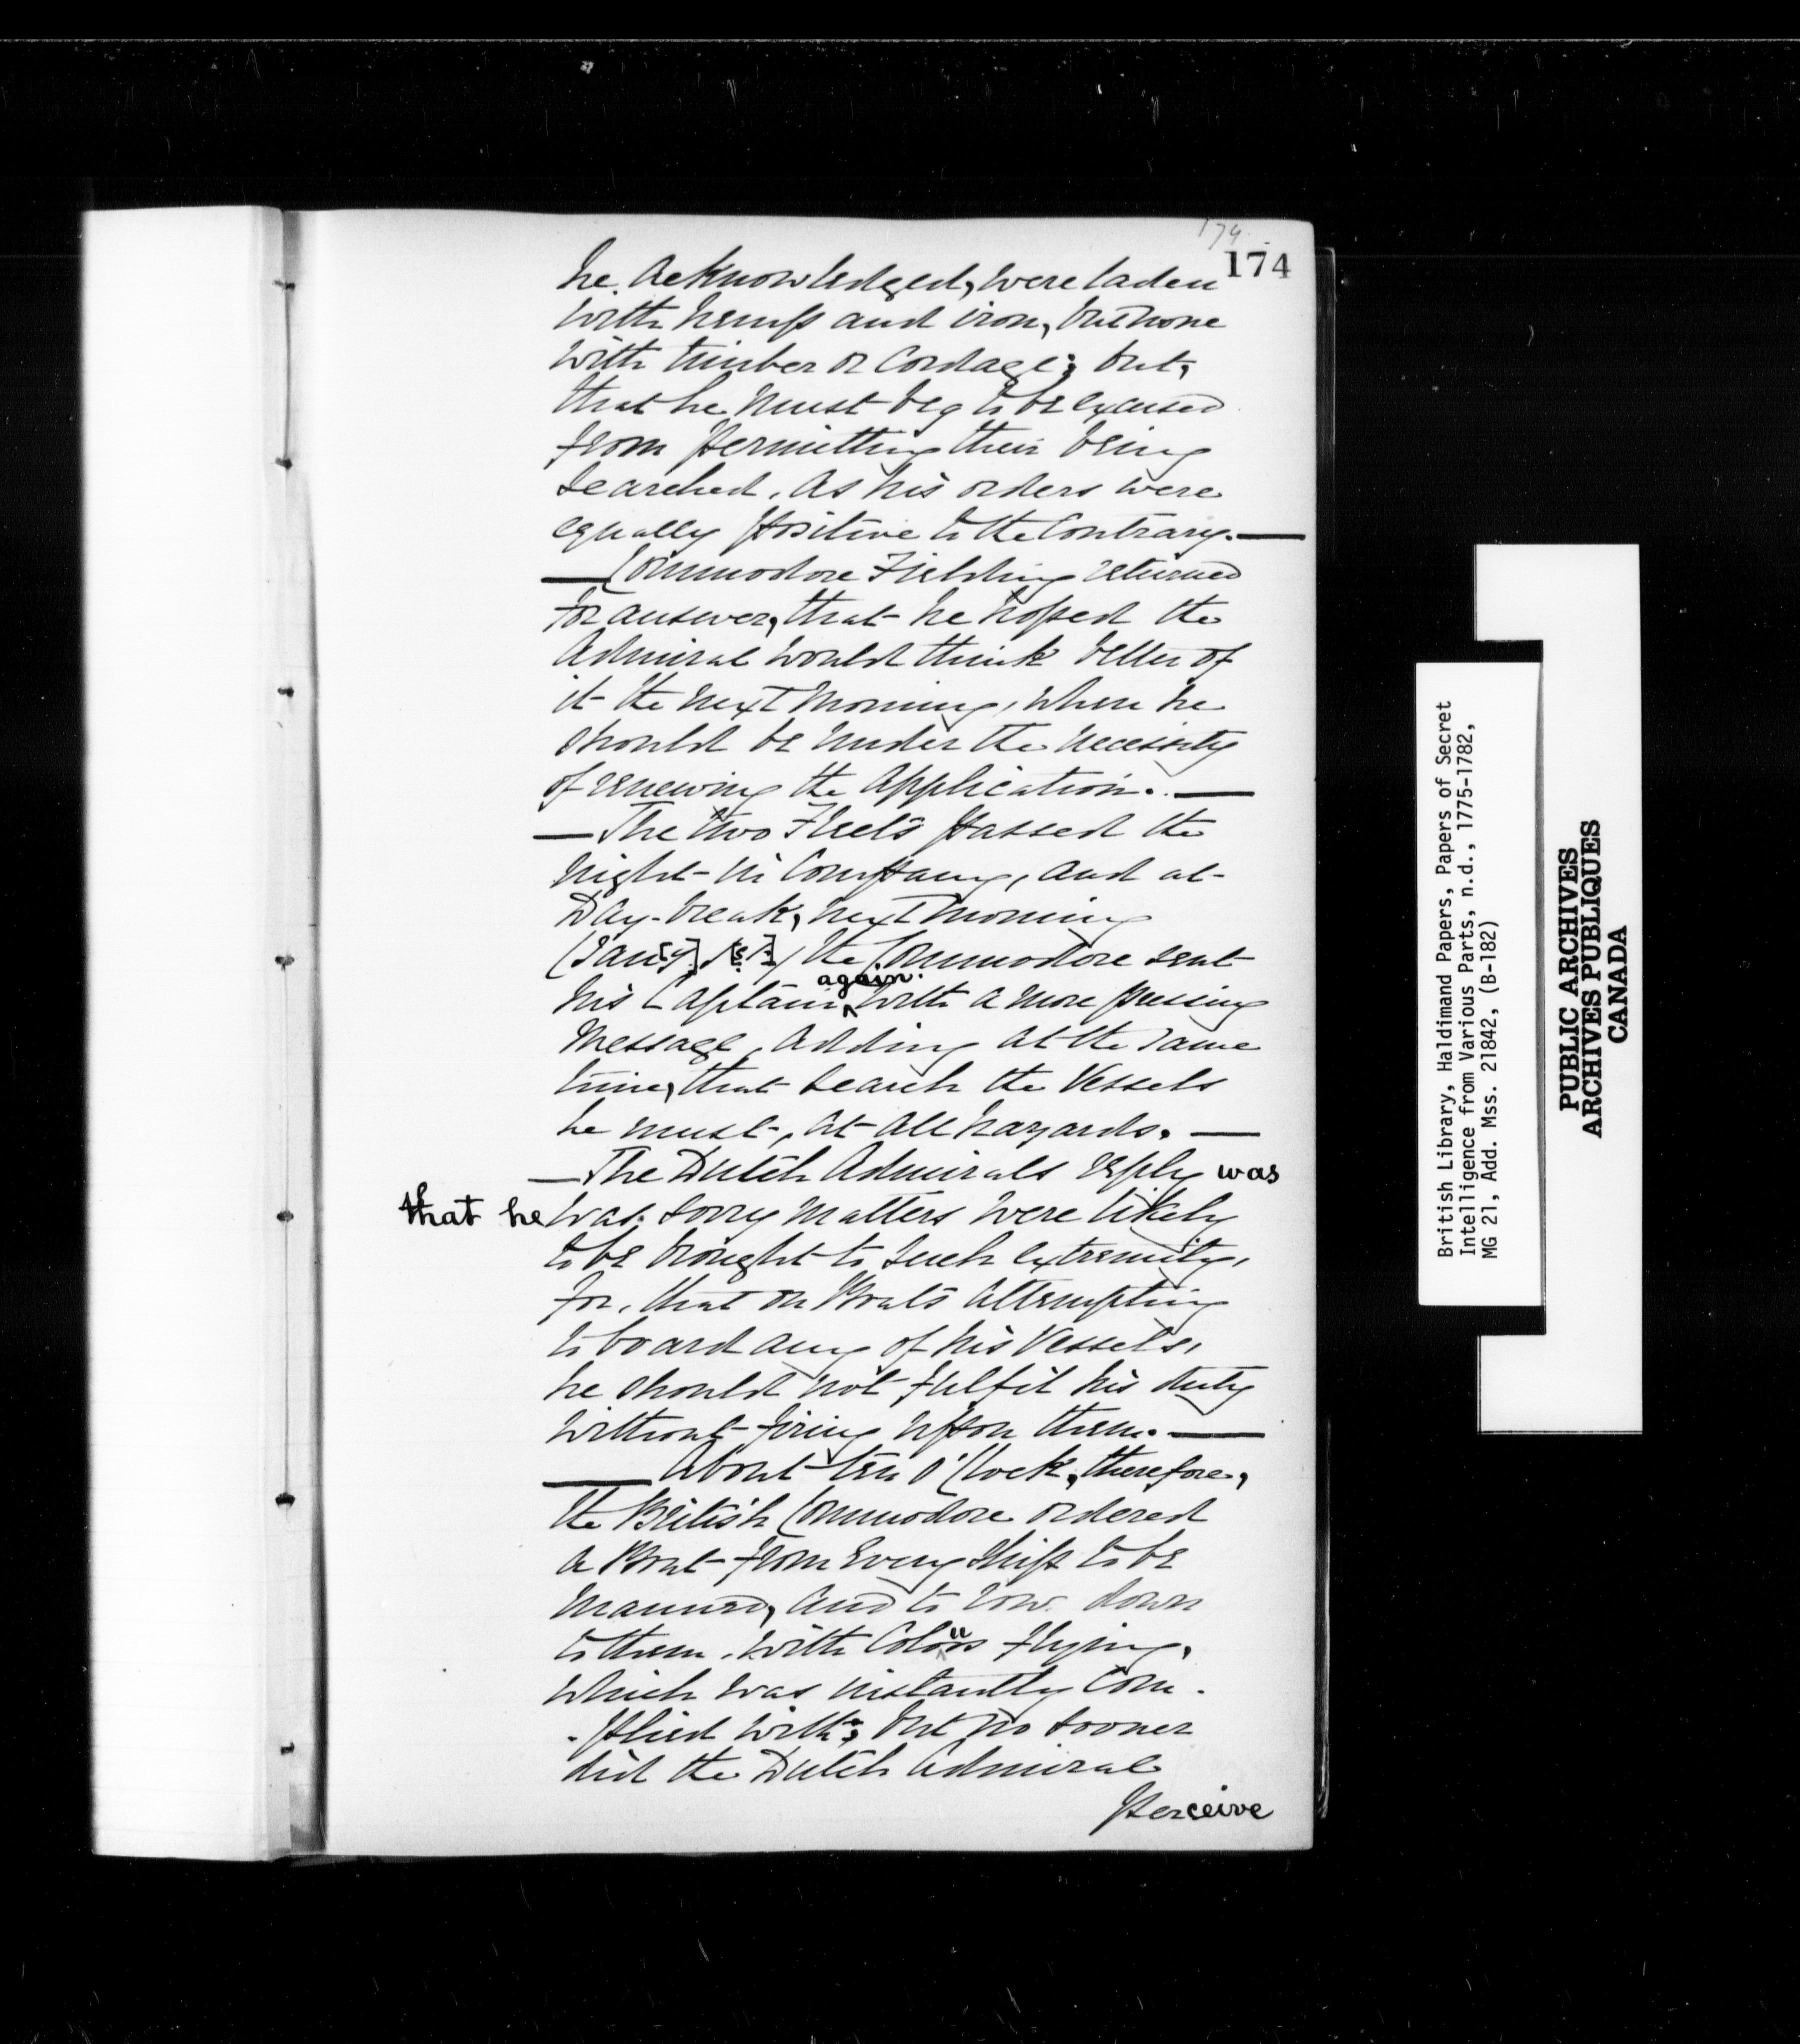 174
174
he acknowledged, were laden
with hemp and iron, but none
with timber or Cordage; but,
that he must beg to be excused
from permitting their being
searched, as his orders were
equally positive to the Contrary.—
—Commodore Fielding returned
for answer, that he hoped the
Admiral would think better of
it the next morning, when he
should be under the necessity
of renewing the application.—
—The two Fleets passed the
night in Company, and at
Day-break, next morning
the Commodore sent
again
his Captain ^ with a more pressing
Message, adding at the same
time, that search the Vessels
he must, at all hazards.—
—The Dutch Admirals reply was
that he was sorry matters were likely
to be brought to such extremity,
for, that on Boats attempting
to board any of his Vessels,
he should not fulfil his duty
without firing upon them.—
—About ten o'Clock, therefore,
the British Commodore ordered
a Boat from every Ship to be
manned, and to row down
to them, with Colours flying,
which was instantly Com-
-plied with; but no sooner
did the Dutch Admiral
perceive
British Library, Haldimand Papers, Papers of Secret
Intelligence from Various Parts, n.d., 1775-1782,
MG 21, Add. Mss. 21842, (B-182)
PUBLIC ARCHIVES
ARCHIVES PUBLIQUES
CANADA